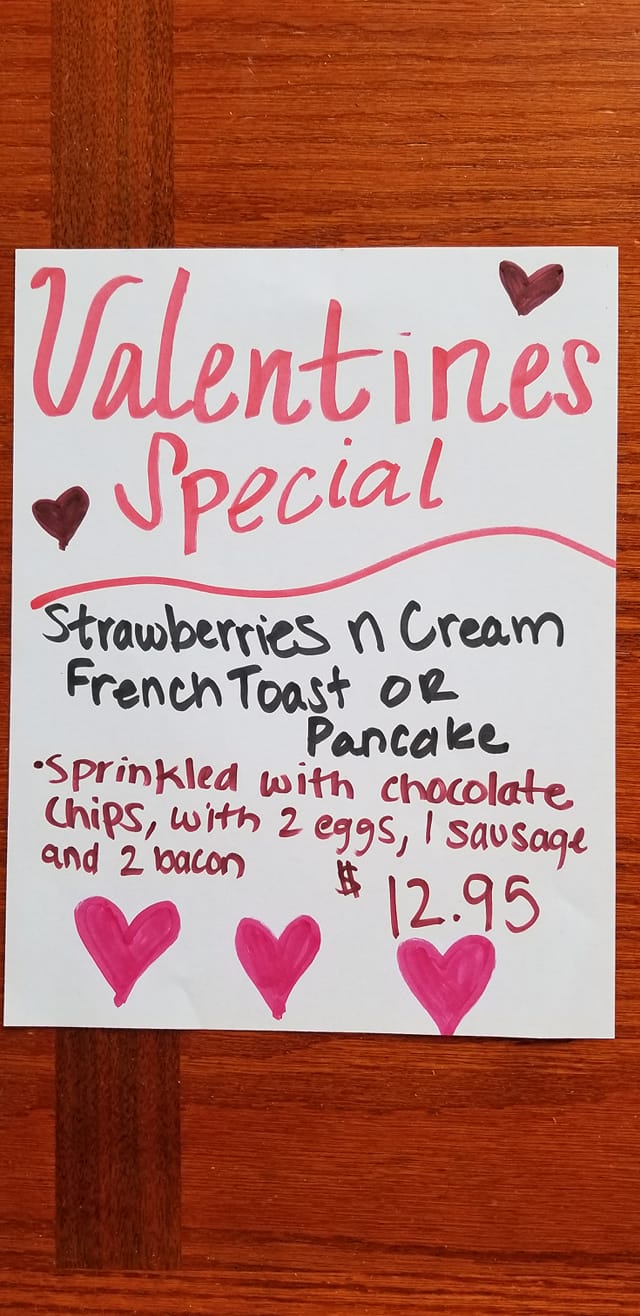 Valentines
Special
Strawberries n Cream
French Toast OR
Pancake
•Sprinkled with chocolate
Chips, with 2 eggs, 1 sausage
and 2 bacon
$ 12.95